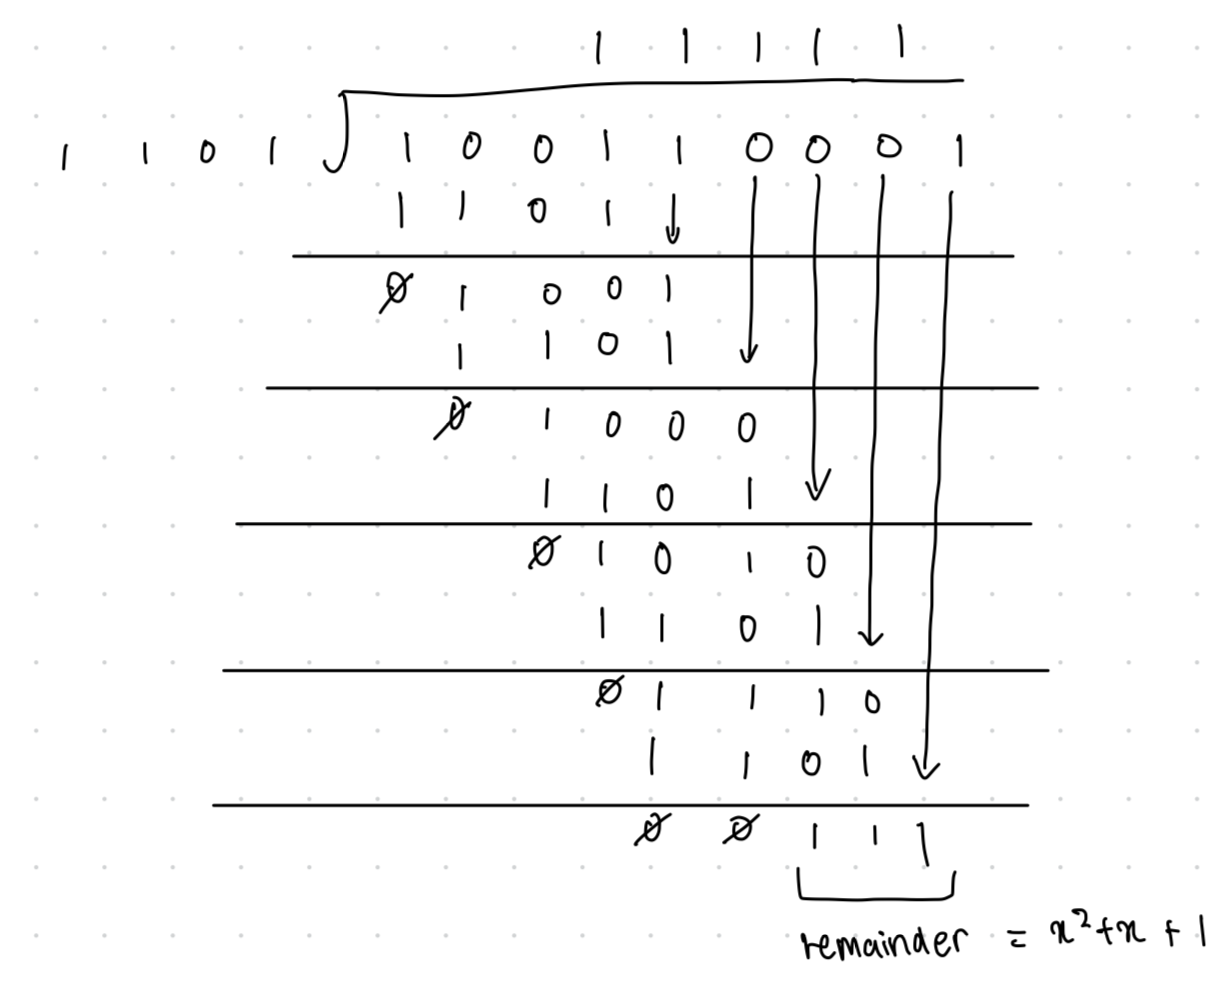 1 1 1 1 1
1 1 0 1 1 0 0 1 1 0 0 0 1
1 1 0 1
0 1 0 0 1
1 1 0 1
0 1 0 0 0
1 1 0 1
0 1 0 1 0
1 1 0 1
0 1 1 1 0
1 1 0 1
0 0 1 1 1
remainder = x²+x+1